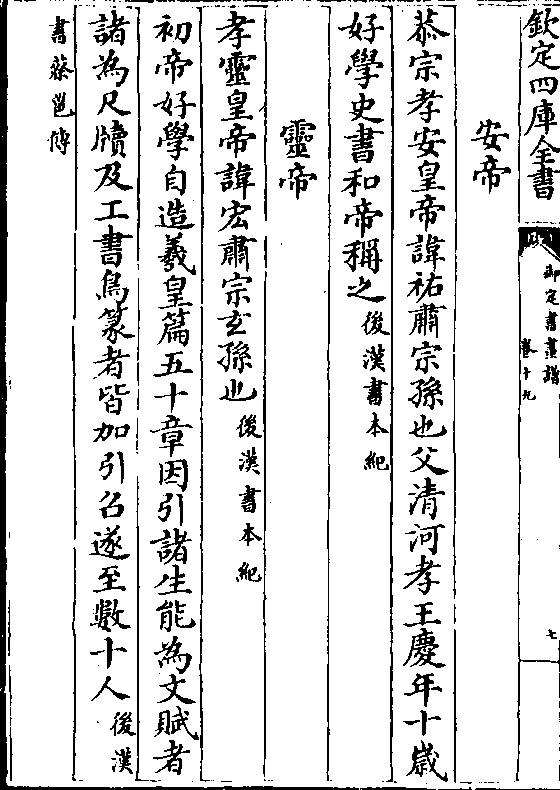 欽定四庫全書
御定書畫譜
卷十九
七
安帝
恭宗孝安皇帝諱祐肅宗孫也父清河孝王慶年十歲
好學史書和帝稱之後漢書本紀
靈帝
孝靈皇帝諱宏肅宗玄孫也後漢書本紀
初帝好學自造羲皇篇五十章因引諸生能為文賦者
諸為尺牘及工書鳥篆者皆加引召遂至數十人後漢
書蔡邕傳